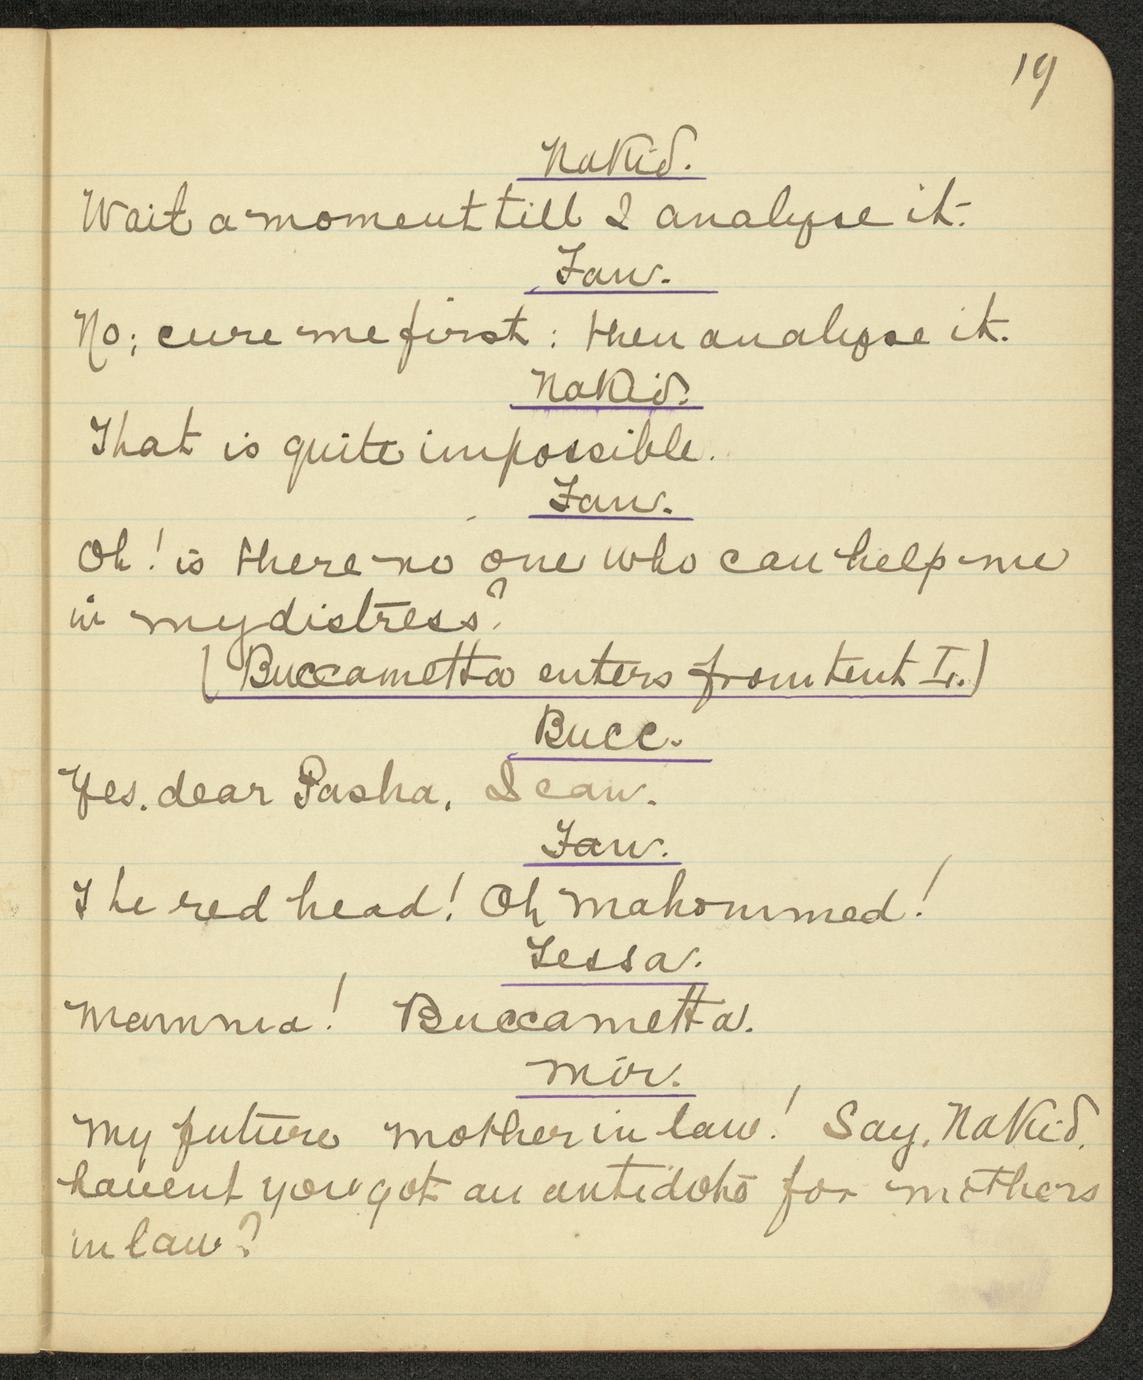 19
Nakid.
Wait a moment till I analyse it.
Fan.
No; cure me first: then analyse it.
Nakid.
That is quite impossible.
Fan.
Oh! is there no one who can help me
in my distress?
(Buccametta enters from tent L.)
Bucc.
Yes. dear Pasha, I can.
Fan.
The red head! Oh Mahommed!
Tessa.
Mamma! Buccametta.
Mir.
My future mother in law! Say, Nakid.
havent you got an antidote for mothers
in law?